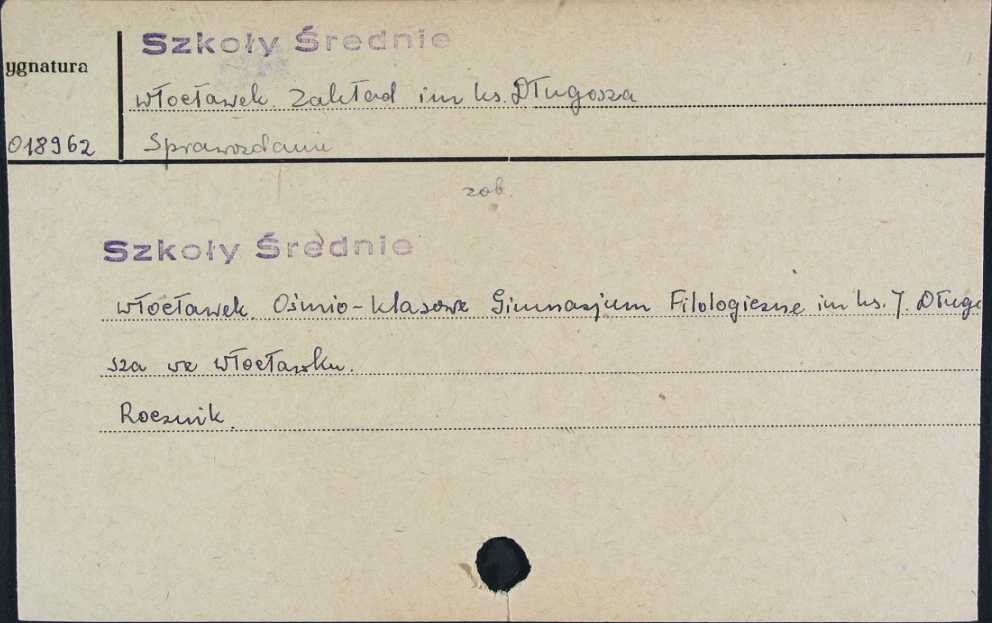 Szkoły Średnie
ygnatura
Włocławek. Zakład im ks. Długosza
018962
Sprawozdanie
zob.
Szkoły Średnie
Włocławek. Ośmio-klasowe Gimnazjum Filologiczne im ks. J. Długo
sza we Włocławku.
Rocznik.